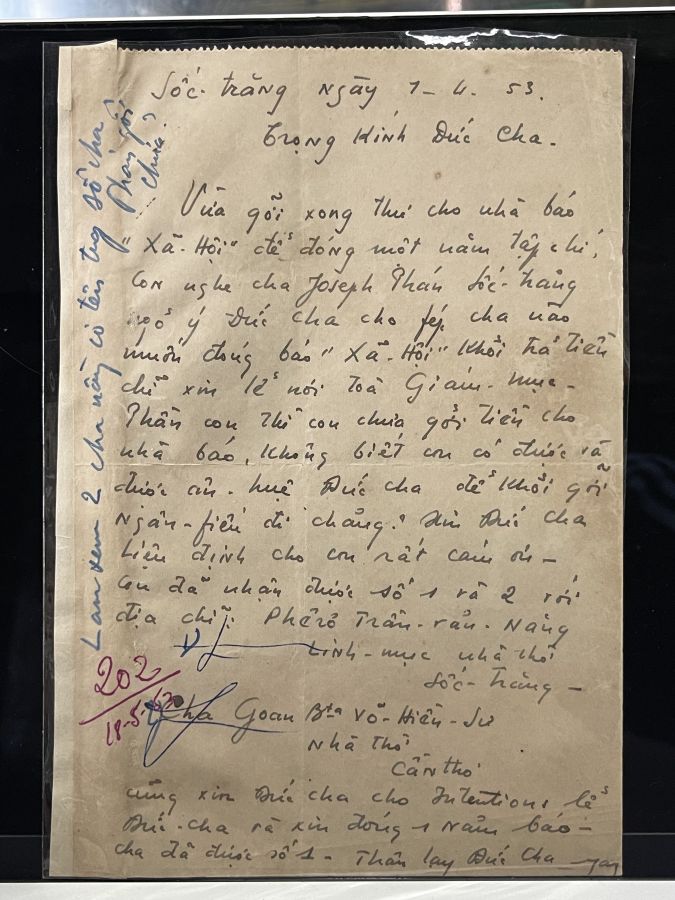 Sốc-trăng ngày 1-4.53.
Trọng Kính Đức Cha.
Vừa gởi xong thư cho nhà báo
"Xã-Hội" để đóng một năm tạp chí,
Con nghe cha Joseph Phán Sốc-trăng
ngỏ ý Đức cha cho fép cha nào
muốn đóng báo "Xã-Hội" Khỏi trả tiền
chỉ xin lễ nơi toà Giám-mục-
Phần con thì con chưa gởi tiền cho
nhà báo, Không biết con có được
được ơn-huệ Đức cha để Khỏi gởi
Ngân-fiếu đi chăng? Xin Đức cha
liệu định cho con rất cám ơn-
đã nhận được số 1 và 2 với
địa chỉ: Phêrô Trần-văn-Năng
Linh-mục nhà thờ
Sốc-Trăng-
Cha Goan Bta Võ-Hiền-Sư
Nhà Thờ
Cần thơ
cũng xin Đức cha cho Intentions lễ
Đức-cha và xin đóng 1 Năm báo-
cha đã được số 1- Thân lạy Đức Cha
xem 2 cha này có tên trg sổ cha
Phán gởi
chưa?
202
18-5-53